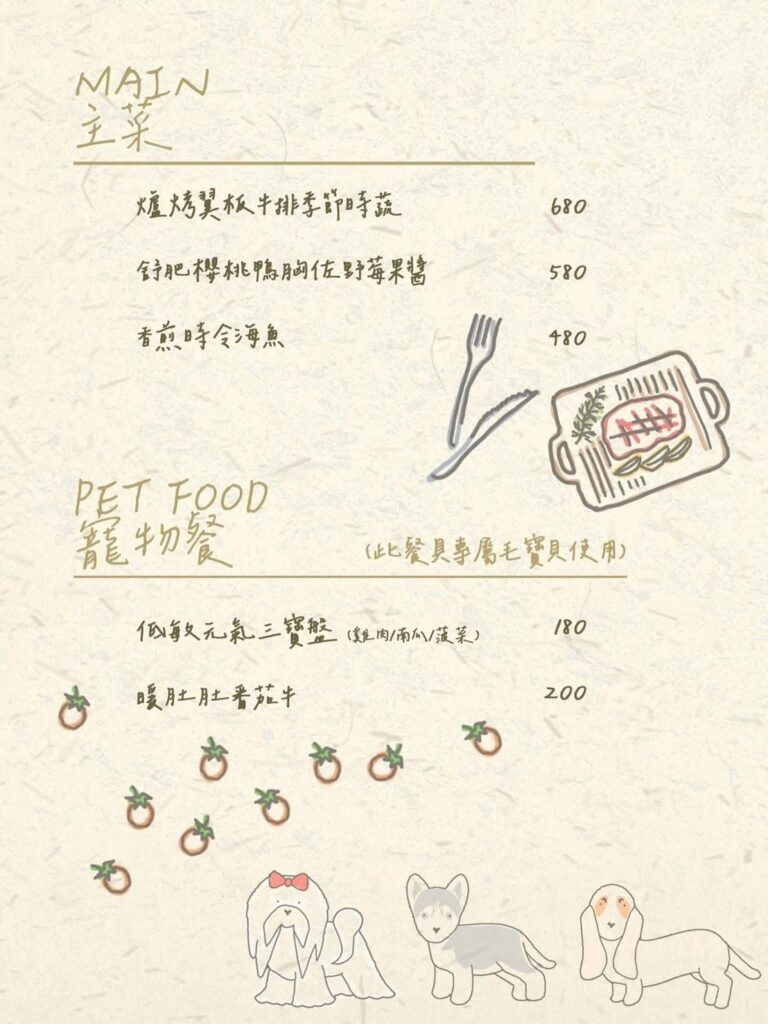 MAIN
主菜
爐烤翼板牛排季節時蔬 680
舒肥櫻桃鴨胸佐野莓果醬 580
香煎時令海魚 480
PET FOOD
寵物餐 (此餐具專屬毛寶貝使用)
低敏元氣三寶盤 (雞肉/南瓜/菠菜) 180
暖肚肚番茄牛 200